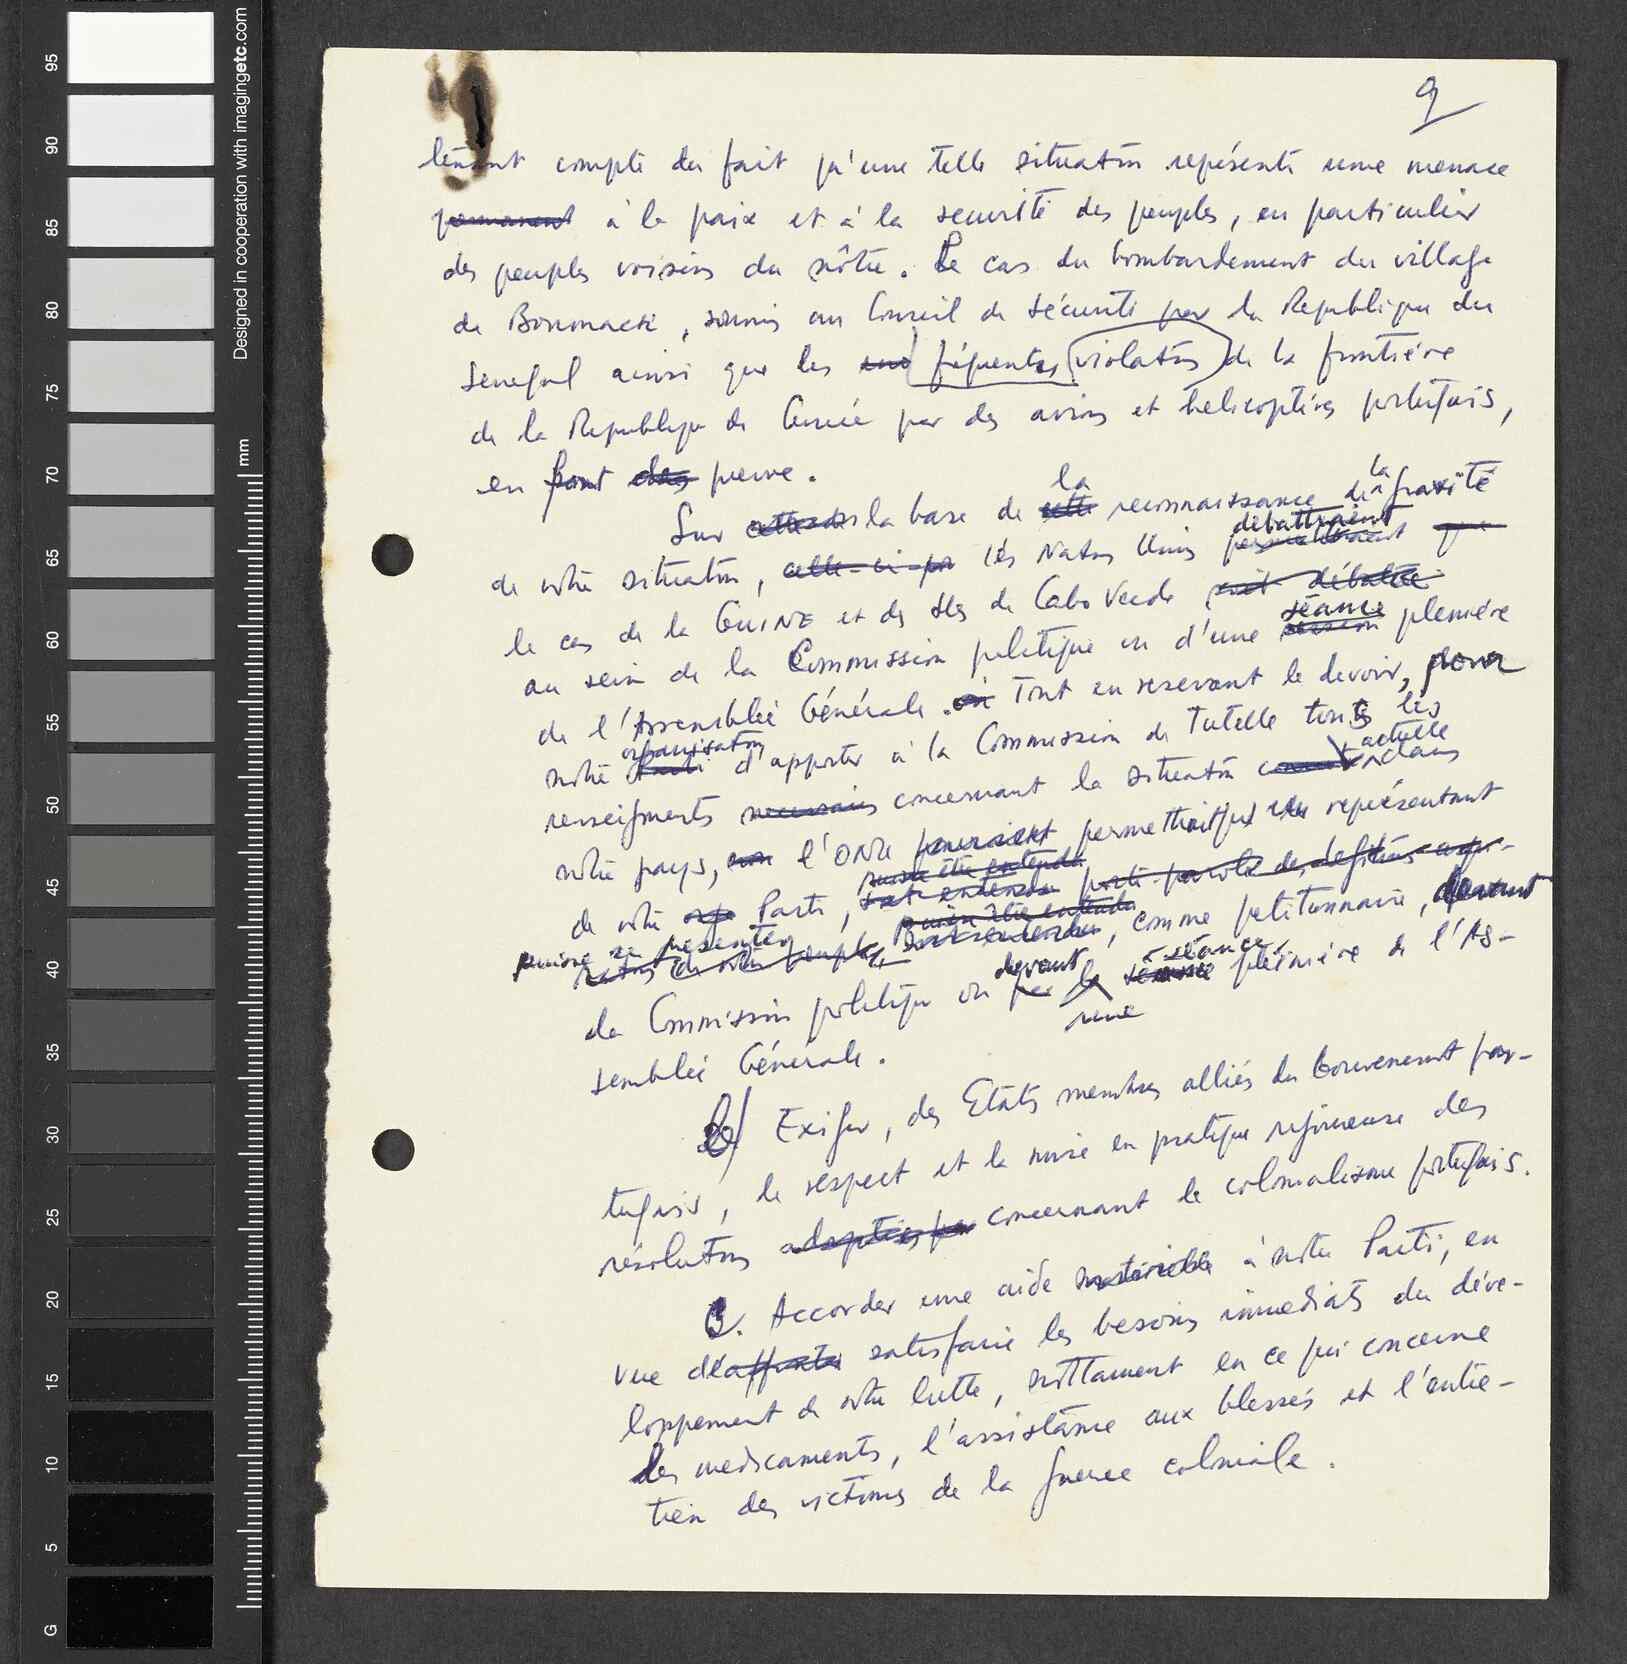 9
tenant compte du fait qu'une telle situation représente une menace
permanent à la paix et à la securité des peuples, en particulier
des peuples voisins du nôtre. Le cas du bombardement du village
de Bounnacki, soumis au Conseil de Sécurité par la Republique du
Senegal ainsi que les fréquentes violations de la frontière
de la Republique de Guinée par des avions et helicoptères portugais,
en font des preuve.
Sur la base de la reconnaissance de la gravité
de notre situation, celle-ci les Nations Unies débattraient que
le cas de la GUINE et des Iles de Cabo Verde soit débattue
au sein de la Commission politique ou d'une séance session plenière
de l'Assemblée Générale. Tout en reservant le devoir, pour
notre organisation Parti d'apporter à la Commission de Tutelle tous les
renseigments necessaires concernant la situation actuelle dans
notre pays, l'ONU permettrait qu'un représentant
de notre Parti, porte-parole des légitimes aspi-
puisse se presenter rations de notre peuple, puisse être entendu, comme petitionnaire, devant
la Commission politique ou devant par une la séance plenière de l'As-
semblée Générale.
2/ Exiger, des Etats membres alliés du Gouvenement por-
tugais, le respect et la mise en pratique rigoureuse des
résolutions adoptées par concernant le colonialisme portugais.
3. Accorder une aide materielle à notre Parti, en
vue de satisfaire les besoins immediats du déve-
loppement de notre lutte, nottament en ce qui concerne
les medicaments, l'assistance aux blessés et l'entre-
tien des victimes de la guerre coloniale.
Designed in cooperation with imagingetc.com
mm
95
90
85
80
75
70
65
60
55
50
45
40
35
30
25
20
15
10
5
G